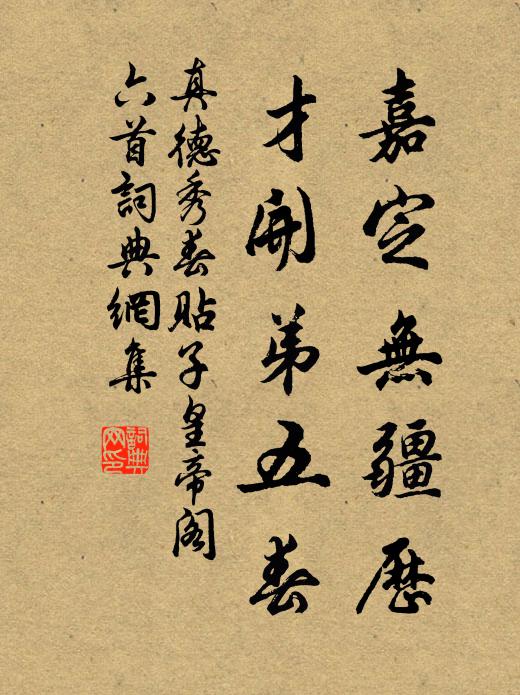 嘉定無疆歷
才開弟五春
真德秀春貼子皇帝閣
六首詞典網集
詞典網印